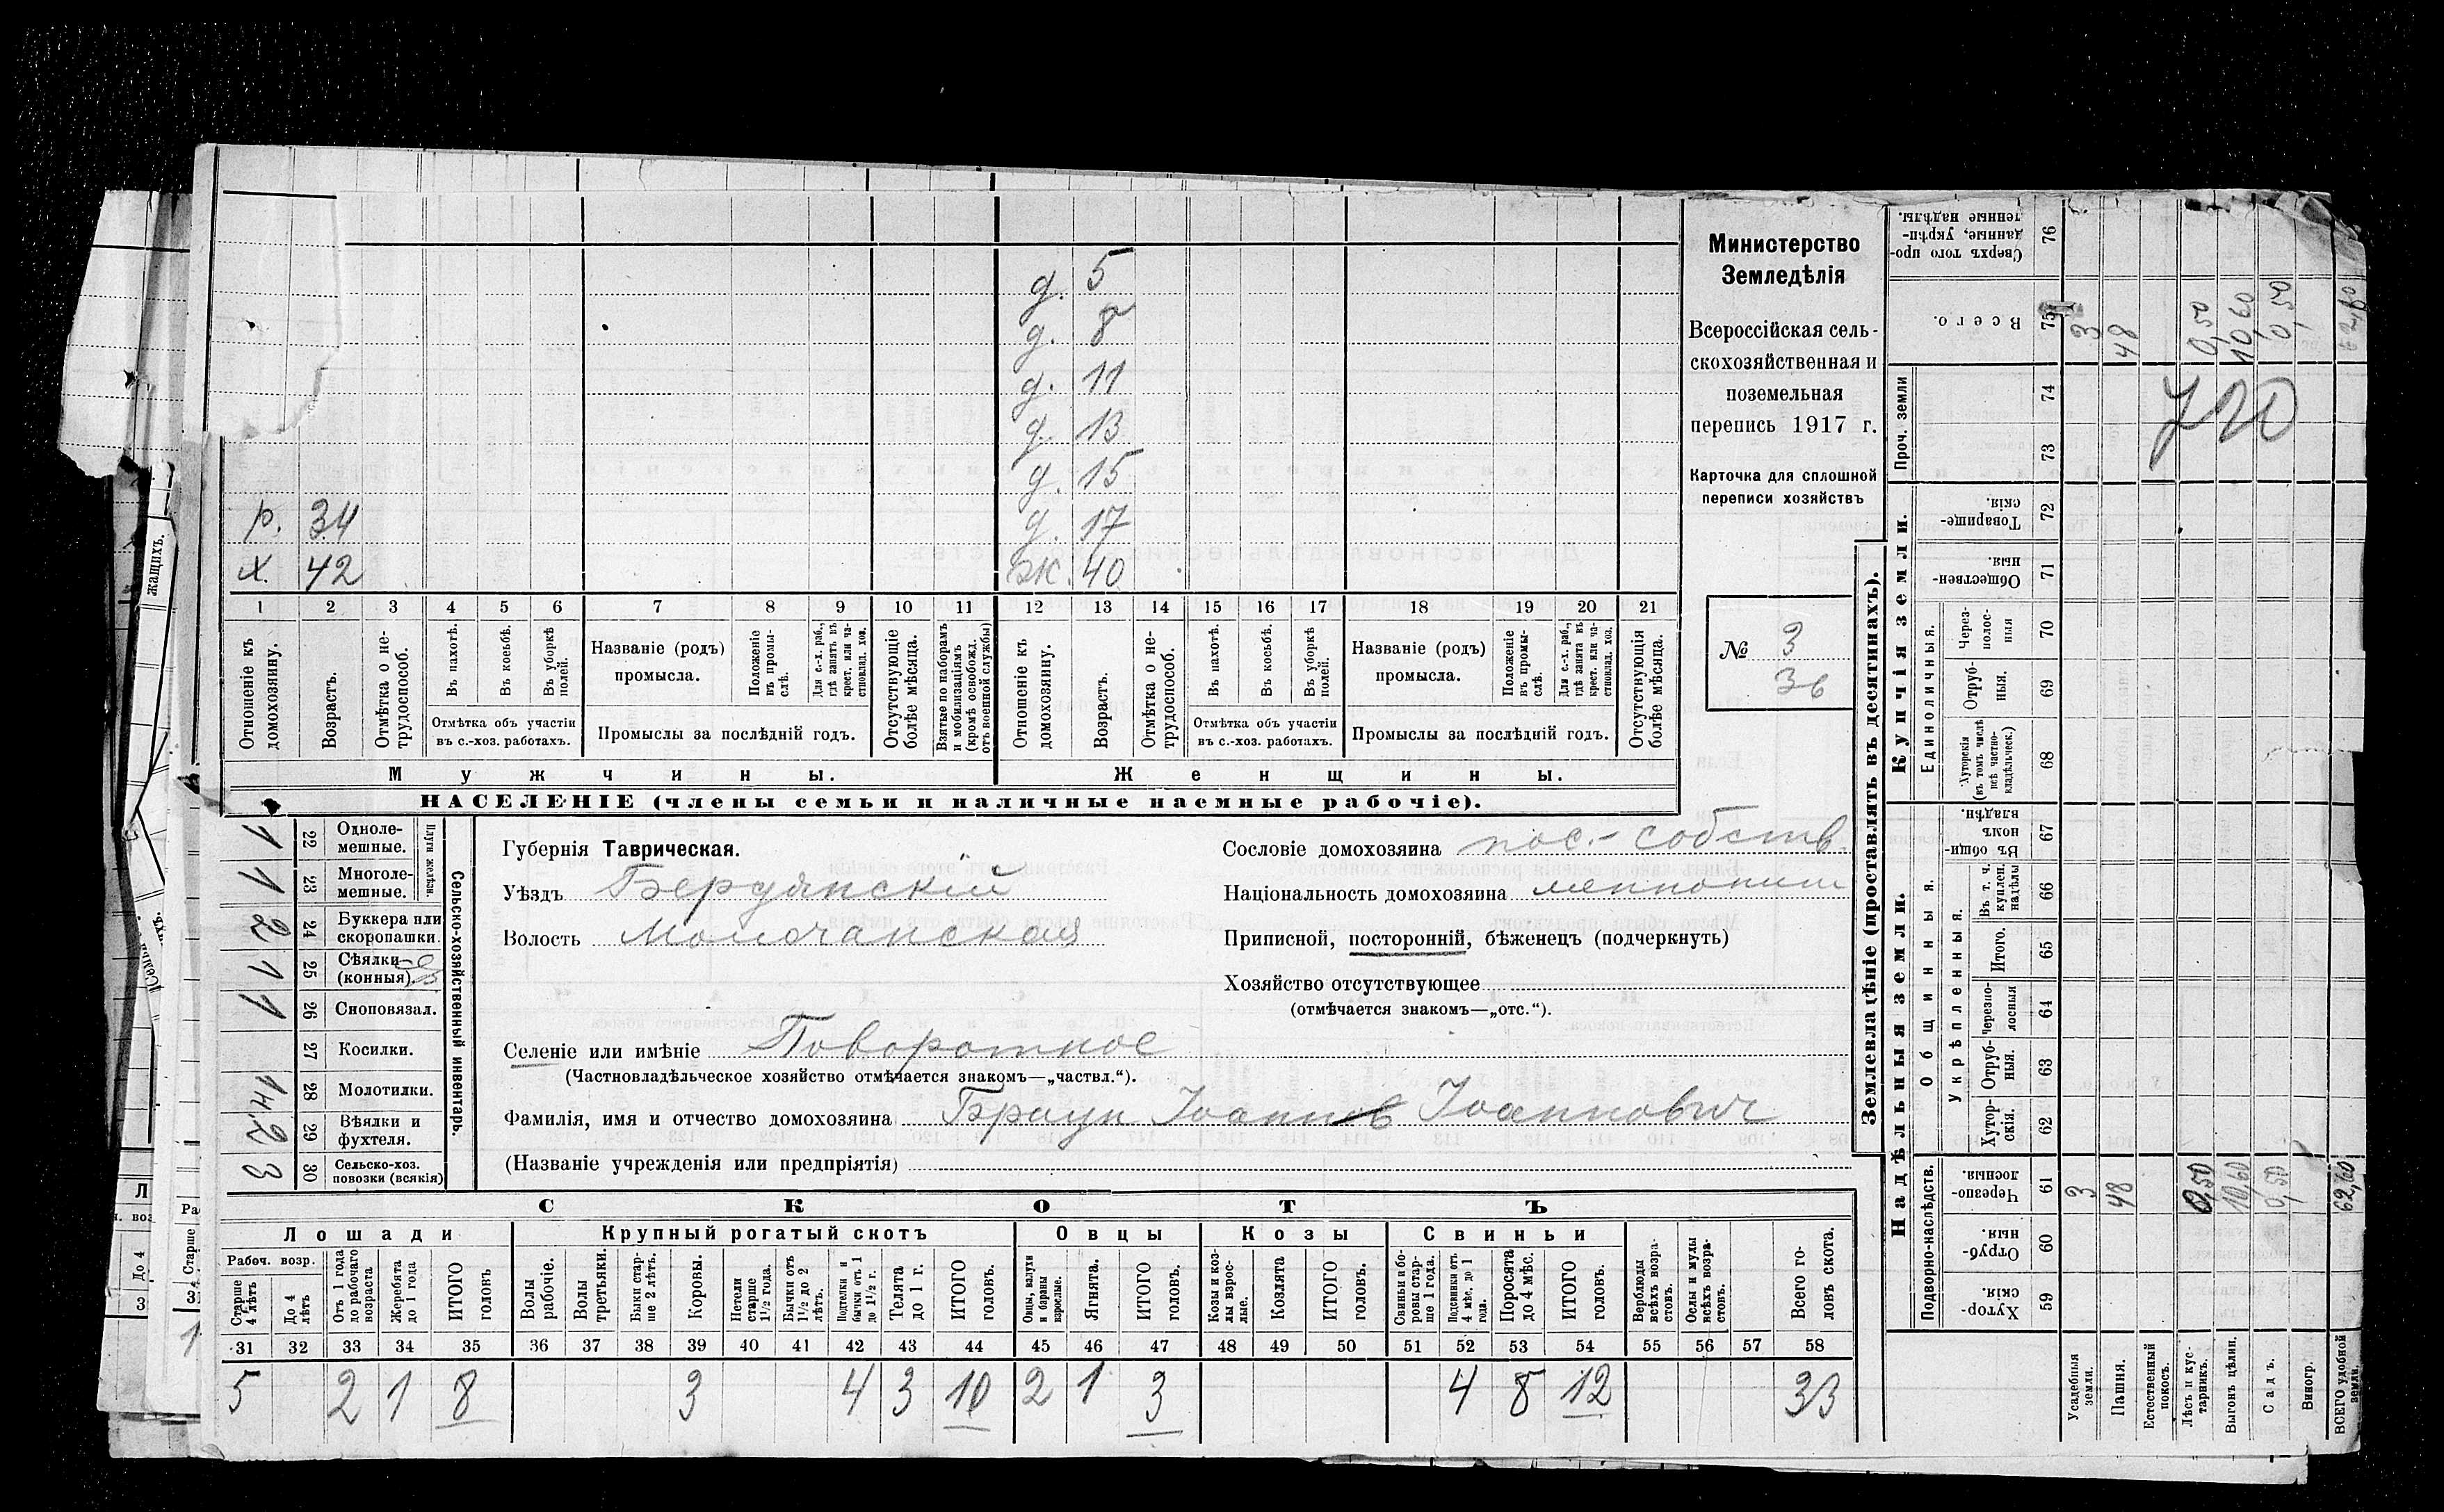 д. 5
д. 8
д. 11
д. 13
д. 15
р. 34 д. 17
х. 42 ж. 40
1 2 3 4 5 6 7 8 9 10 11 12 13 14 15 16 17 18 19 20 21
Отношеніе къ домохозяину.
Возрастъ.
Отмѣтка о нетрудоспособ.
Въ пахотѣ.
Въ косьбѣ.
Въ уборкѣ полей.
Отмѣтка объ участіи
въ с.-хоз. работахъ.
Названіе (родъ)
промысла.
Положеніе въ промыслѣ.
Для с.-х. раб., гдѣ занятъ въ крест. или частновлад. хоз.
Промыслы за послѣдній годъ.
Отсутствующіе болѣе мѣсяца.
Взятые по наборамъ и мобилизаціямъ (кромѣ освобожд. отъ военной службы)
Отношеніе къ домохозяину.
Возрастъ.
Отмѣтка о нетрудоспособ.
Въ пахотѣ.
Въ косьбѣ.
Въ уборкѣ полей.
Отмѣтка объ участіи
въ с.-хоз. работахъ.
Названіе (родъ)
промысла.
Положеніе въ промыслѣ.
Для с.-х. раб., гдѣ занята въ крест. или частновлад. хоз.
Промыслы за послѣдній годъ.
Отсутствующія болѣе мѣсяца.
Мужчины. Женщины.
НАСЕЛЕНІЕ (члены семьи и наличные наемные рабочіе).
Министерство
Земледѣлія
Всероссійская сель-
скохозяйственная и
поземельная
перепись 1917 г.
Карточка для сплошной
переписи хозяйствъ
№ 3
36
Сельско-хозяйственный инвентарь.
Плуги желѣзн.
1 22 Одноле-
мешные.
1 23 Многоле-
мешные.
2 24 Буккера или
скоропашки.
1 25 Сѣялки
(конныя)
1 26 Сноповязал.
27 Косилки.
28 Молотилки.
2 29 Вѣялки и
фухтеля.
3 30 Сельско-хоз.
повозки (всякія)
Губернія Таврическая.
Уѣздъ Бердянскій
Волость Молочанская
Сословіе домохозяина пос.- собств.
Національность домохозяина меннонит
Приписной, посторонній, бѣженецъ (подчеркнуть)
Хозяйство отсутствующее
(отмѣчается знакомъ—„отс.“).
Селеніе или имѣніе Поворотное
(Частновладѣльческое хозяйство отмѣчается знакомъ—„частвл.“).
Фамилія, имя и отчество домохозяина Браун Іоаннъ Іоаннович
(Названіе учрежденія или предпріятія)
СКОТЪ
Лошади Крупный рогатый скотъ Овцы Козы Свиньи
Рабоч. возр.
Старше 4 лѣтъ
До 4 лѣтъ
Отъ 1 года до рабочаго возраста
Жеребята до 1 года
ИТОГО головъ
Волы рабочіе.
Волы третьяки.
Быки старше 2 лѣтъ.
Коровы.
Нетели старше 1½ года.
Бычки отъ 1½ до 2 лѣтъ.
Подтелки и бычки отъ 1 до 1½ г.
Телята до 1 г.
ИТОГО головъ.
Овцы, валухи и бараны взрослые.
Ягнята.
ИТОГО головъ.
Козы и козлы взрослые.
Козлята
ИТОГО головъ.
Свиньи и боровы старше 1 года.
Подсвинки отъ 4 мѣс. до 1 года.
Поросята до 4 мѣс.
ИТОГО головъ.
Верблюды всѣхъ возрастовъ.
Ослы и мулы всѣхъ возрастовъ.
Всего головъ скота.
31 32 33 34 35 36 37 38 39 40 41 42 43 44 45 46 47 48 49 50 51 52 53 54 55 56 57 58
5 2 1 8 3 4 3 10 2 1 3 4 8 12 33
Землевладѣніе (проставлять въ десятинахъ).
Купчія земли.
Надѣльныя земли.
Сверхъ того проданные, укрѣпленные надѣлы. 76
Всего. 75 3 48 0,50 10,60 0,50 62,60
Проч. земли 74 73
720
Товарищескія. 72
Общественныя 71
Единоличныя.
Черезполосныя 70
Отрубныя. 69
Хуторскія (въ томъ числѣ всѣ частновладѣльческ.) 68
Общинныя.
Въ общинномъ владѣн. 67
Укрѣпленныя.
Въ т. ч. куплен. надѣлы 66
Итого. 65
Черезполосныя 64
Отрубныя. 63
Хуторскія. 62
Подворно-наслѣдств.
Черезполосныя. 61 3 48 0,50 10,60 0,50 62,60
Отрубныя 60
Хуторскія. 59
Усадебныя земли.
Пашня.
Естественный покосъ.
Лѣсъ и кустарникъ.
Выгонъ цѣлин.
Садъ.
Виногр.
ВСЕГО удобной земли.